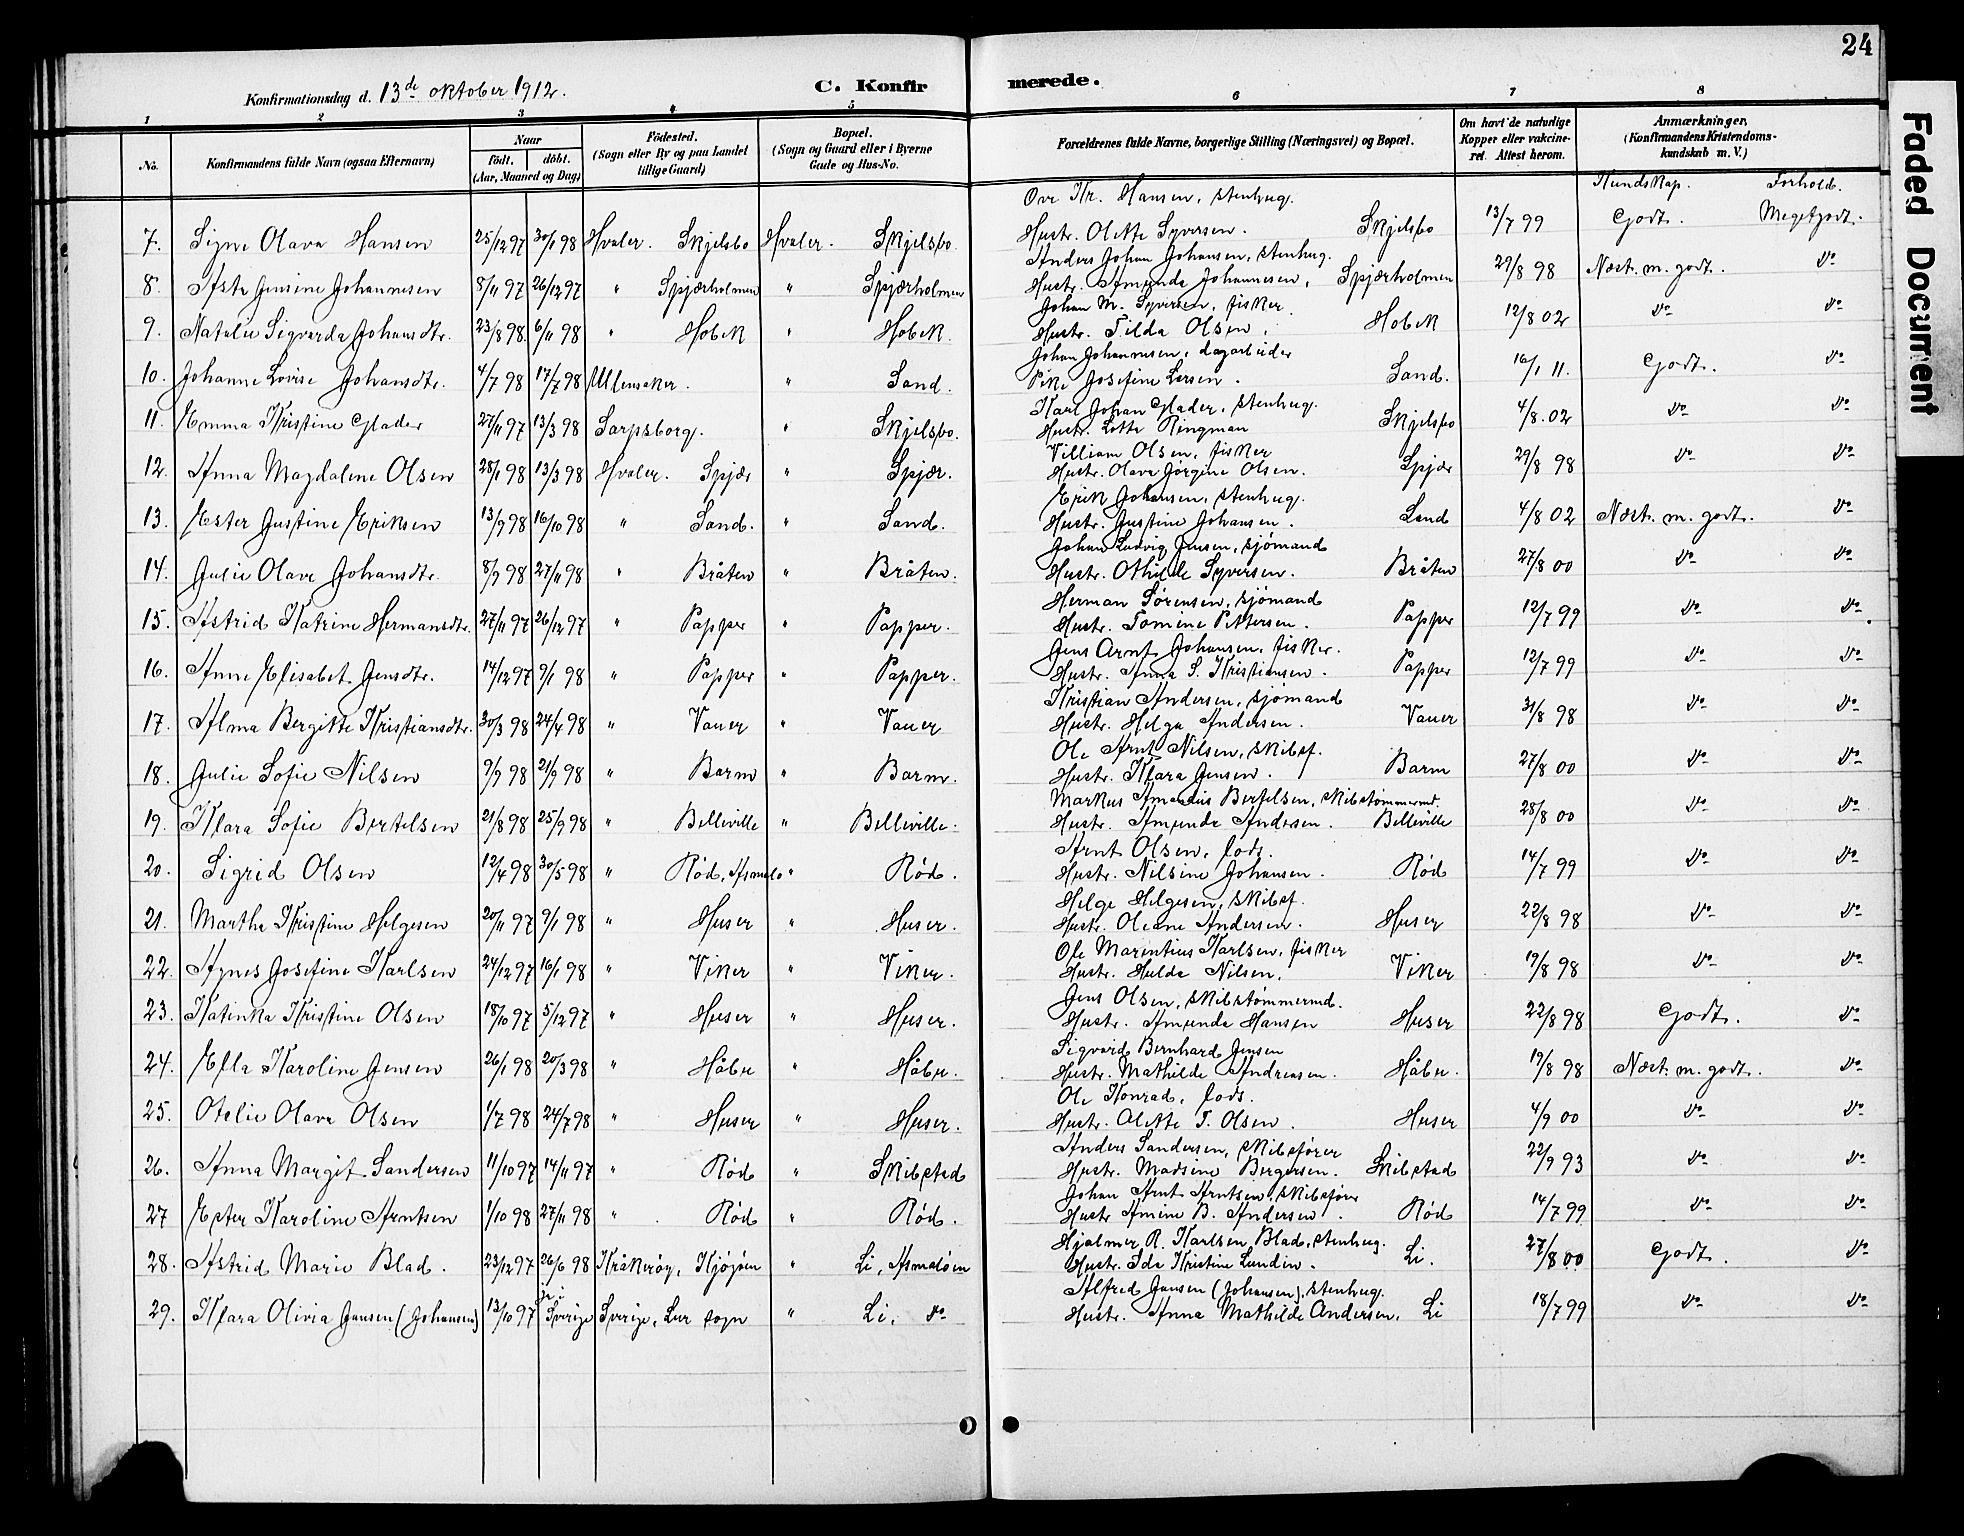 24
Faded Document
Konfirmationsdag d. 13de oktober 1912.
C. Konfirmerede.
1 2 3 4 5 6 7 8
No.
Konfirmandens fulde Navn (ogsaa Efternavn)
Naar
født. døbt.
(Aar, Maaned og Dag)
Fødested.
(Sogn eller By og paa Landet
tillige Gaard)
Bopæl.
(Sogn og Gaard eller i Byerne
Gade og Hus-No.
Forældrenes fulde Navne, borgerlige Stilling (Næringsvei) og Bopæl.
Om havt de naturlige
Kopper eller vakcine-
ret. Attest herom.
Anmærkninger,
(Konfirmandens Kristendoms-
kundskab m. V.)
Kundskap. Forhold.
Ove Kr. Hansen, stenhug.
7. Signe Olava Hansen 25/12 97 30/1 98 Hvaler. Skjelsbo Hvaler. Skjelsbo. Hustr. Olette Syversen. Skjelsbo 13/7 99 Godt. Megetgodt.
Anders Johan Johansen, stenhug.
8. Asta Jensine Johannesen 8/11 97 26/12 97 " Spjærholmen " Spjærholmen Hustr. Amunda Johannesen, Spjærholmen 29/8 98 Næst. m. godt. do
Johan M. Syversen, fisker.
9. Natalie Sigvarda Johansdtr. 23/8 98 6/11 98 " Hobek " Hobek. Hustr. Tilda Olsen, Hobek 12/8 02 do do
Johan Johannesen, dagarbeider
10. Johanne Lovise Johansdtr. 4/7 98 17/7 98 Ullensaker. " Sand. Pike Josefine Larsen. Sand. 16/1 11. Godt. do
Karl Johan Glader, stenhug.
11. Emma Kristine Glader 27/11 97 13/3 98 Sarpsborg. " Skjelsbo. Hustr. Lotte Ringman Skjelsbo 4/8. 02 do do
Villiam Olsen, fisker
12. Anna Magdalene Olsen 28/1 98 13/3 98 Hvaler. Spjær " Spjær. Hustr. Olava Jørgine Olsen. Spjær 29/8 98 do do
Erik Johansen, stenhug.
13. Ester Justine Eriksen 13/9 98 16/10 98 " Sand. " Sand. Hustr. Justine Johansen. Sand 4/8 02 Næst. m. godt. do
Johan Ludvig Jensen, sjømand
14. Julie Olava Johansdtr. 8/9 98 27/11 98 " Bråten " Bråten. Hustr. Othilde Syversen. Bråten 27/8 00 do do
Herman Sørensen, sjømand
15. Astrid Katrine Hermansdtr. 27/11 97 26/12 97 " Papper " Papper. Hustr. Tomine Pettersen. Papper 12/7 99 do do
Jens Arnt Johansen, fisker.
16. Anne Elisabet Jensdtr. 14/12 97 9/1 98 " Papper " Papper. Hustr. Anna S. Kristiansen. Papper 12/7 99 do do
Kristian Andersen, sjømand
17. Alma Bergitte Kristiansdtr. 30/3 98 24/4 98 " Vauer " Vauer Hustr. Helga Andersen. Vauer 31/8 98 do do
Ole Arnt Nilsen, skibsf.
18. Julie Sofie Nilsen 9/9 98 21/9 98 " Barm " Barm. Hustr. Klara Jensen. Barm 27/8 00 do do
Markus Amandus Bertelsen, skibstømmermd.
19. Klara Sofie Bertelsen 21/8 98 25/9 98 " Belleville " Belleville. Hustr. Amunda Andersen. Belleville 28/8 00 do do
Arnt Olsen, lods.
20. Sigrid Olsen 12/4 98 30/5 98 " Rød, Asmalo " Rød. Hustr. Nilsine Johansen. Rød 14/7 99 do do
Helge Helgesen, skibsf.
21. Martha Kristine Helgesen 20/11 97 9/1 98 " Huser " Huser. Hustr. Oleane Andersen. Huser 22/8 98 do do
Ole Marentius Karlsen, fisker
22. Agnes Josefine Karlsen 24/12 97 16/1 98 " Viker " Viker. Hustr. Hulda Nilsen. Viker 19/8 98 do do
Jens Olsen, skibstømmermd.
23. Katinka Kristine Olsen 18/10 97 5/12 97 " Huser " Huser. Hustr. Amunda Hansen Huser 22/8 98 Godt. do
Sigvard Bernhard Jensen
24. Ella Karoline Jensen 26/1 98 20/3 98 " Håbu " Håbu. Hustr. Mathilde Andreasen. Håbu. 19/8 98 Næst. m. godt. do
Ole Konrad, lods.
25. Otelie Olava Olsen 1/7 98 24/7 98 " Huser " Huser. Hustr. Alette T. Olsen. Huser 4/9 00 do do
Anders Sandersen, skibsfører
26. Anna Margit Sandersen 11/10 97 14/11 97 " Rød " Skibstad Hustr. Madsine Bergersen. Skibstad 22/9 93 do do
Johan Arnt Arntsen, skibsfører
27 Ester Karoline Arntsen 1/10 98 27/11 98 " Rød " Rød. Hustr Amine B. Andersen. Rød 14/7 99 do do
Hjalmer R. Karlsen Blad, stenhug.
28. Astrid Marie Blad. 23/12 97 26/6 98 Kråkerøy, Kjøjøen " Li, Asmaløen Hustr. Ida Kristine Lundin. Li. 27/8 00 Godt. do
Alfred Jansen (Johansen), stenhug.
29. Klara Olivia Jansen (Johansen) 13/10 97 Ja i Sverige Sverige, Lur sogn " Li, do Hustr. Anna Mathilde Andersen, Li 18/7 99 do do